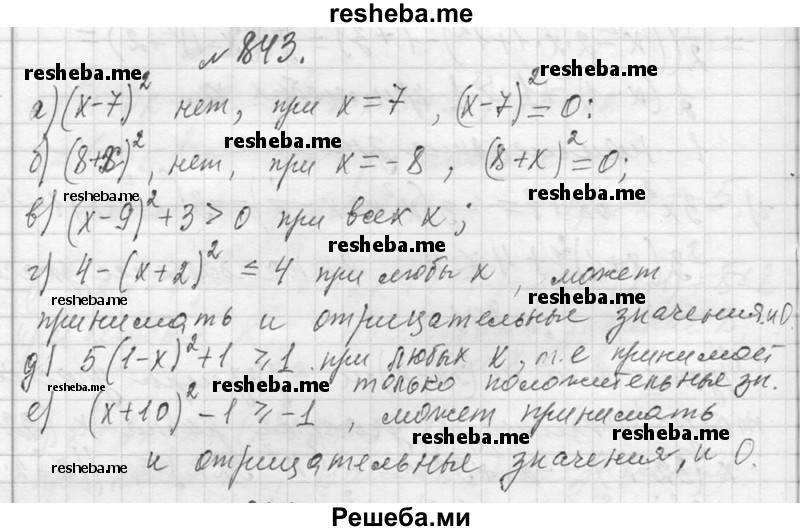 resheba.me
№ 843.
resheba.me resheba.me
а) (x-7)² нет, при x = 7, (x-7)² = 0;
resheba.me
б) (8+x)², нет, при x = -8, (8+x)² = 0;
resheba.me resheba.me
в) (x-9)² + 3 > 0 при всех x;
resheba.me
г) 4 - (x+2)² ≤ 4 при любы x, может
resheba.me resheba.me
принимать и отрицательные значения и 0.
д) 5(1-x)² + 1 ≥ 1 при любых x, т.е принимает
только положительные зн.
resheba.me resheba.me
е) (x+10)² - 1 ≥ -1, может принимать
resheba.me resheba.me
и отрицательные значения, и 0.
resheba.me resheba.me
Решеба.ми